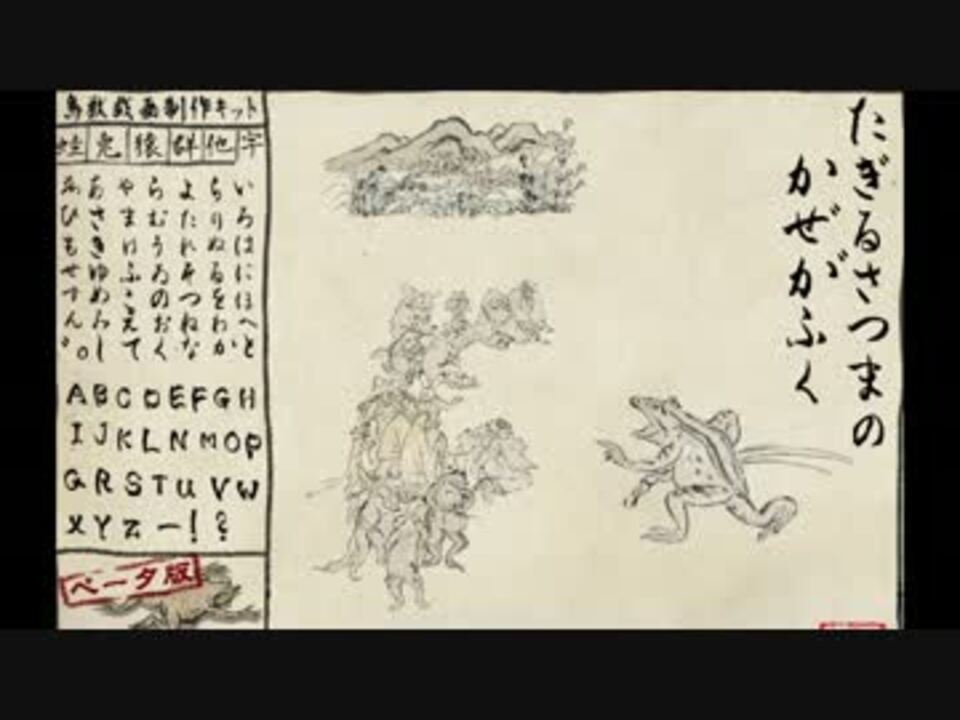 鳥獣戯画制作キット
蛙 兎 猿 群 他 字
いろはにほへと
ちりぬるをわか
よたれそつねな
らむうゐのおく
やまけふこえて
あさきゆめみし
ゑひもせすん゛゜
ABCDEFGH
IJKLNMOP
QRSTUVW
XYZー!?
ベータ版
たぎるさつまの
かぜがふく